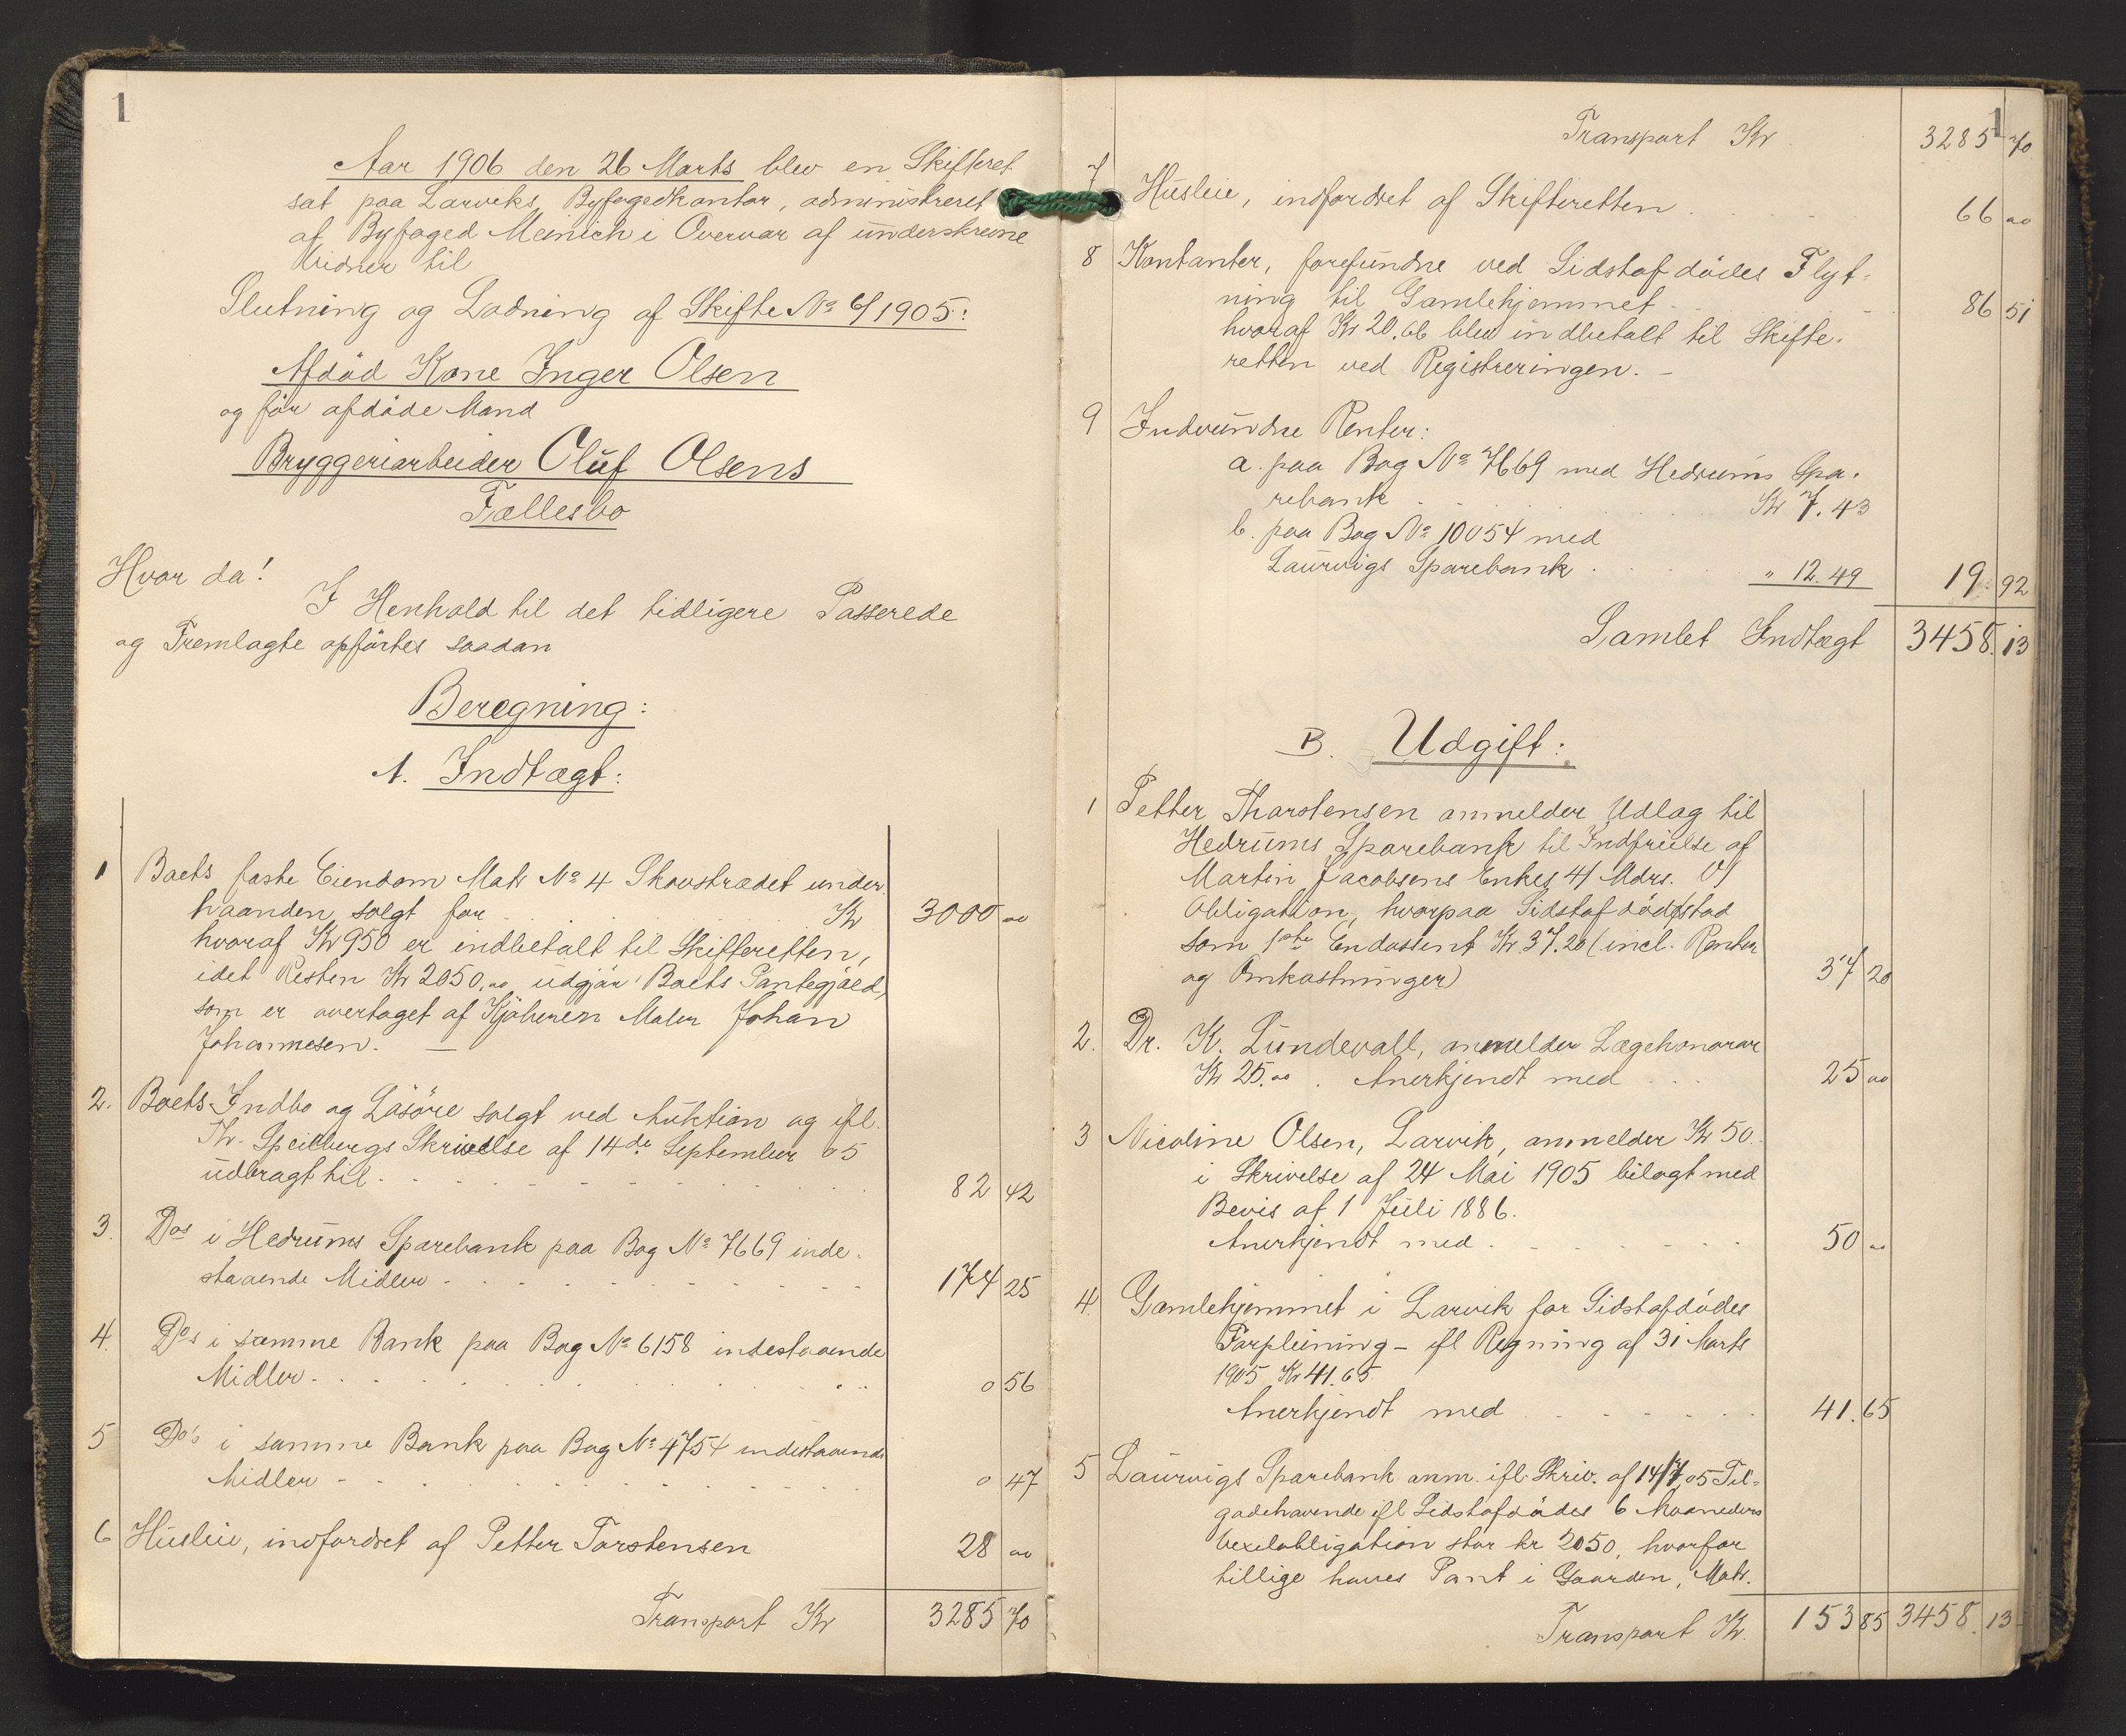 1
Aar 1906 den 26 Marts blev en Skifteret
sat paa Larviks Byfogedkontor, administreret
af Byfoged Meinich i Overvær af underskrevne
Vidner til
Slutning og Lodning af Skifte No 6/1905:
Afdöd Kone Inger Olsen
og för afdöde Mand
Bryggeriarbeider Oluf Olsens
Fællesbo
Hvor da!
I Henhold til det tidligere Passerede
og Fremlagte opförtes saadan
Beregning:
A. Indtægt:
1 Boets faste Eiendom Matr No 4 Skovstrædet under
haanden solgt for Kr 3000 00
hvoraf Kr 950 er indbetalt til Skifteretten,
idet Resten Kr 2050.00 udgjör Boets Pantegjæld,
som er overtaget af Kjöberen Maler Johan
Johannesen. —
2. Boets Indbo og Lösöre solgt ved Auktion og ifl.
Th. Speilbergs Skrivelse af 14de September 05
udbragt til 82 42
3. Dos i Hedrums Sparebank paa Bog No 7669 inde-
staaende Midler 174 25
4. Dos i samme Bank paa Bog No 6158 indestaaende
Midler 0 56
5 Dos i samme Bank paa Bog No 4754 indestaaende
Midler 0 47
6 Husleie, indfordret af Petter Torstensen 28 00
Transport Kr 3285 70
1
Transport Kr 3285 70
7 Husleie, indfordret af Skifteretten 66 00
8 Kontanter, forefundne ved Sidstafdödes Flyt-
ning til Gamlehjemmet 86 51
hvoraf Kr 20.66 blev indbetalt til Skifte-
retten ved Registreringen. —
9 Indvundne Renter:
a. paa Bog No 7669 med Hedrums Spa-
rebank Kr 7.43
b. paa Bog No 10054 med
Laurvigs Sparebank " 12.49 19 92
Samlet Indtægt 3458.13
B. Udgift:
1 Petter Thorstensen anmelder Udlæg til
Hedrums Sparebank til Indfrielse af
Martin Jacobsens Enkes 4 Mdrs.
Obligation, hvorpaa Sidstafdöd stod
som 1ste Endossent Kr 37.20 (incl. Renter
og Omkostninger) 37 20
2. Dr. K. Lundevall, anmelder Lægehonorar
Kr 25.00. Anerkjendt med 25 00
3 Nicoline Olsen, Larvik, anmelder Kr 50.
i Skrivelse af 24 Mai 1905 bilagt med
Bevis af 1 Juli 1886.
Anerkjendt med 50 00
4. Gamlehjemmet i Larvik for Sidstafdödes
Forpleining - ifl Regning af 31 Marts
1905 Kr 41.65
Anerkjendt med 41.65
5 Laurvigs Sparebank anm. ifl. Skriv. af 14/7 05 Til-
godehavende ifl Sidstafdödes 6 Maaneders
Vexelobligation stor kr 2050, hvorfor
tillige haves Pant i Gaarden, Matr.
Transport Kr. 153 85 3458.13